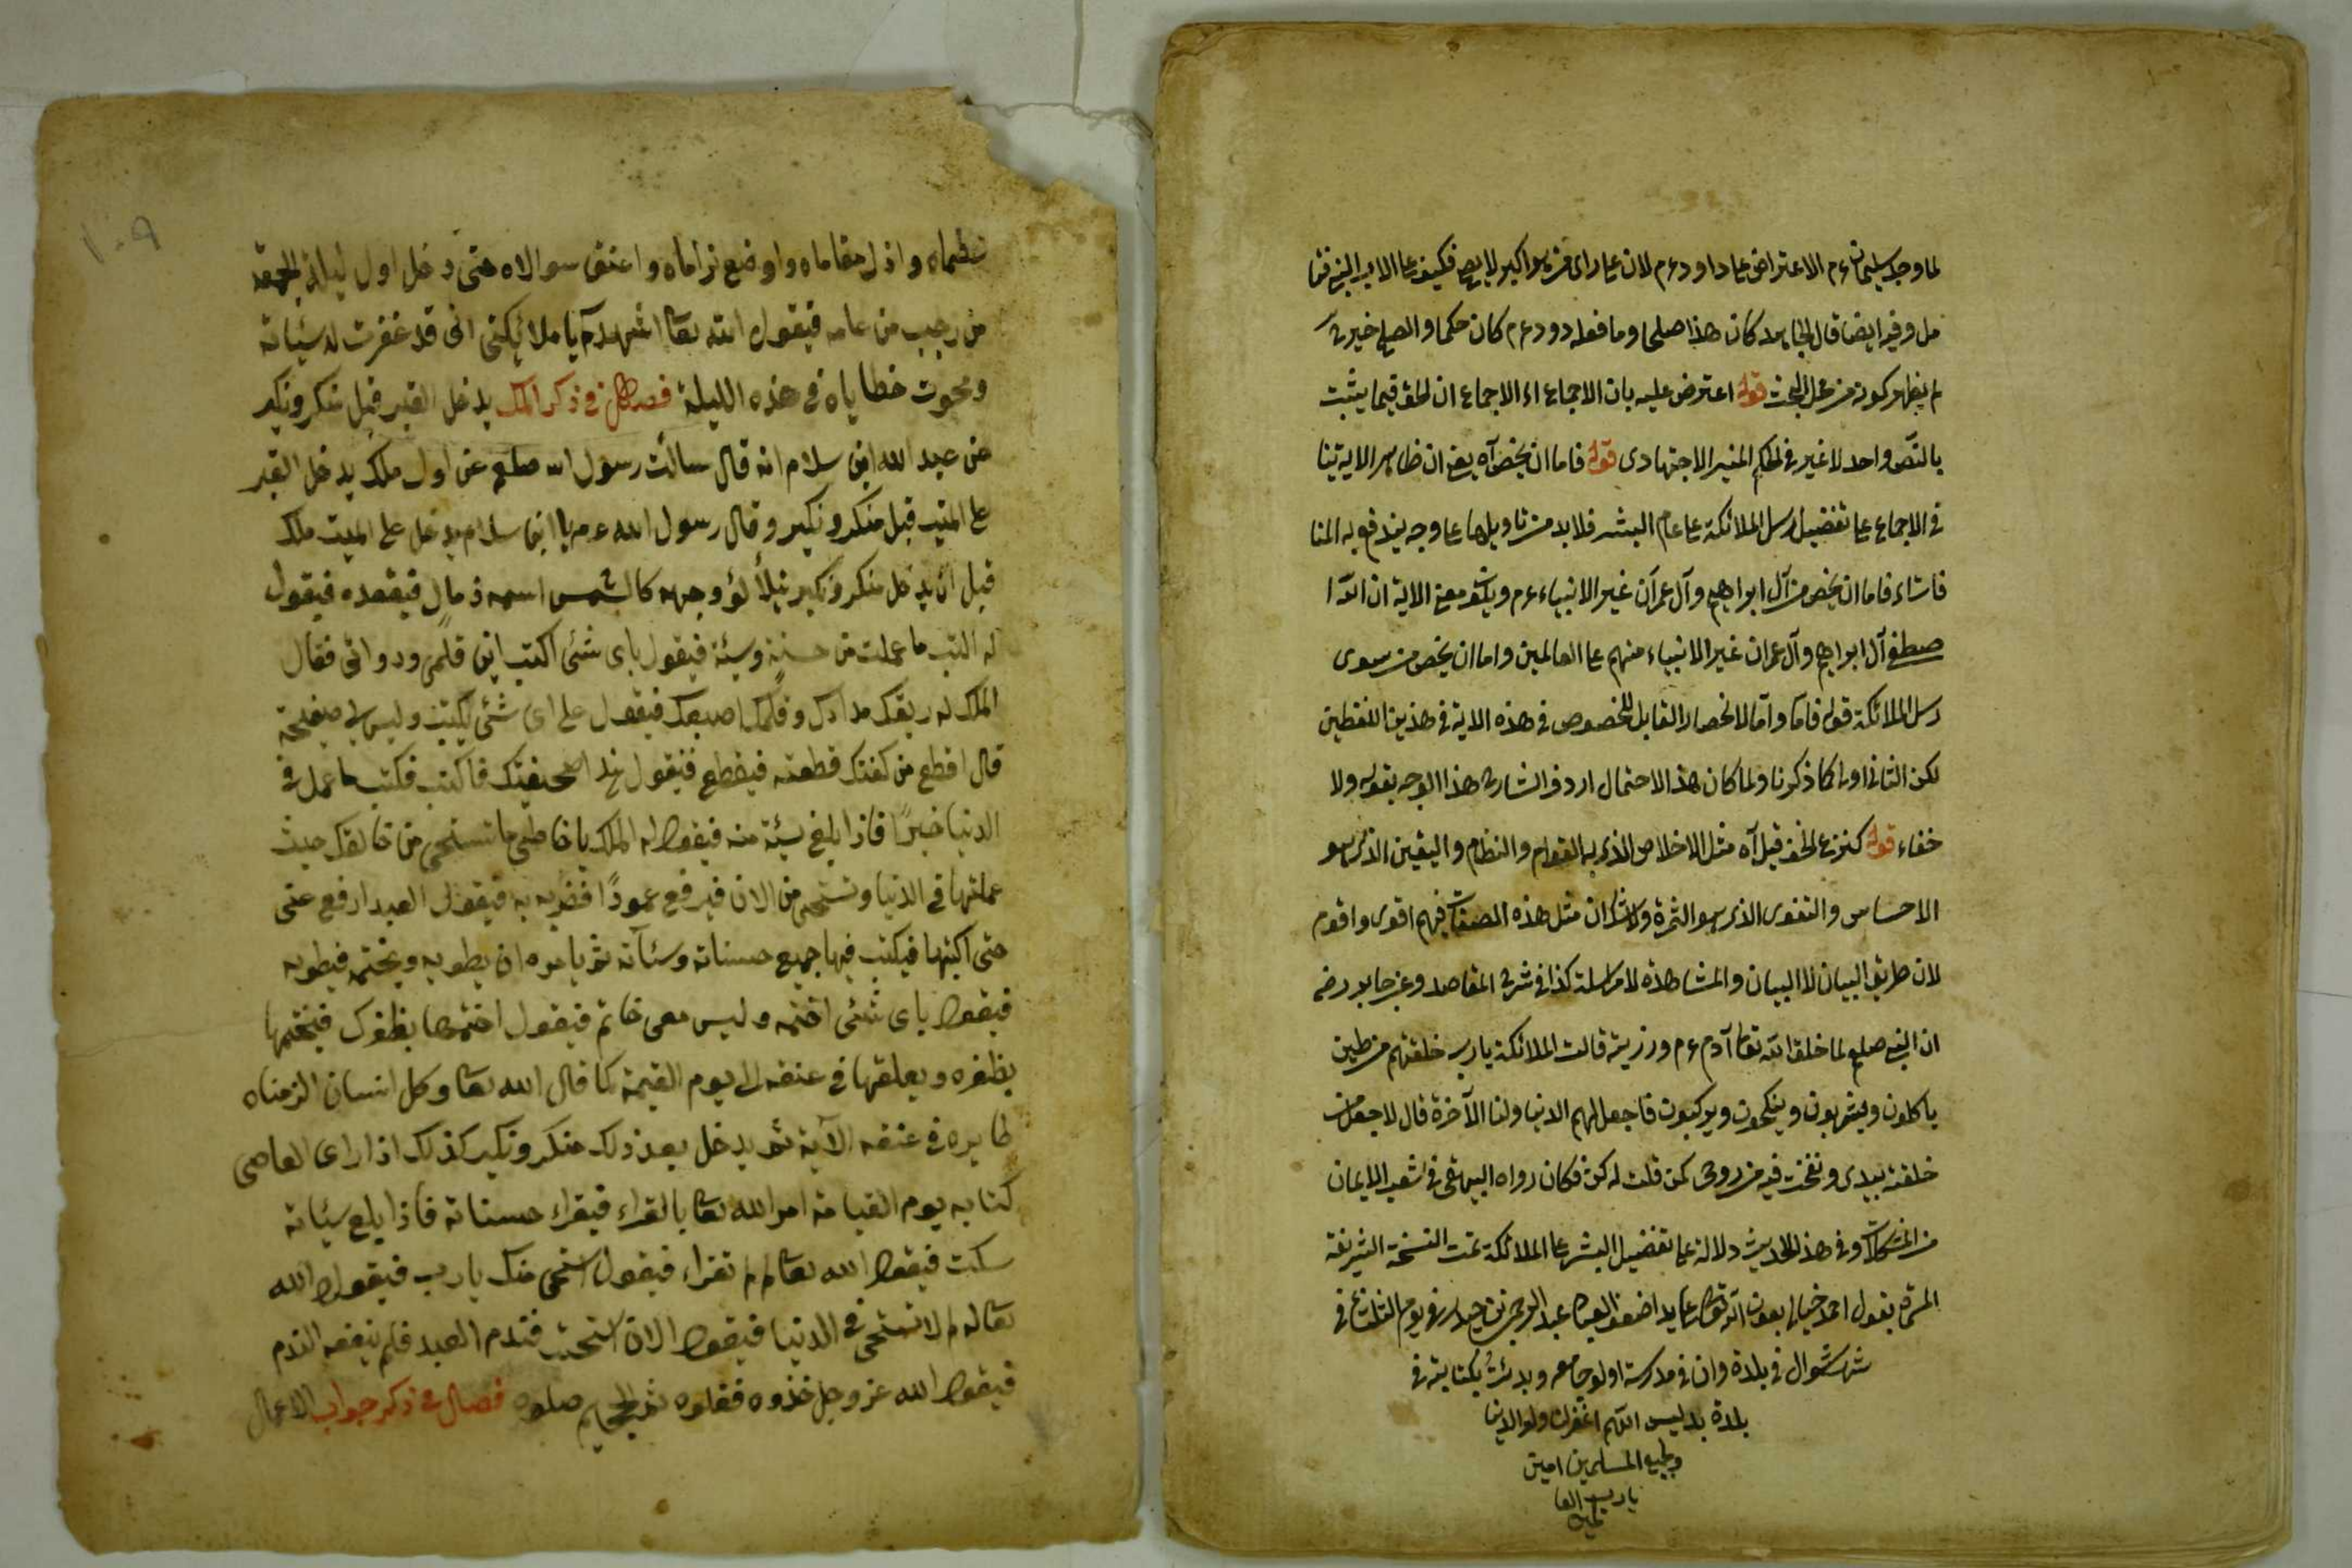 لما وجد سليمان ءم الاعتراض على داود ءم لان على راى من هو اكبر لا يصح فكيف على الاب النبى
مل وفيه ايضا قال كان هذا صلحا وما فعله دود ءم كان حكما والصلح خير
لم يظهر كونه من محل البحث قوله اعترض عليه بان الاجماع اه الاجماع ان الحق فيما يثبت
بالنص واحد لا غير فى الحكم الغير الاجتهادى قوله فاما ان يخص آه يعنى ان ظاهر الاية
فى الاجماع على تفضيل رسل الملائكة على عام البشر فلا بد من تاويلها على وجه يندفع به المنا
فاشاء فاما ان يخص من آل ابراهيم وآل عمران غير الانبياء ءم ويكون معنى الاية ان الله ا
صطفى آل ابراهيم وآل عمران غير الانبياء منهم على العالمين واما ان يخص من سوى
رسل الملائكة قوله فاما واما لانحصار القابل للخصوص فى هذه الاية فى هذين اللفظين
لكن الثانى اولى كما ذكرنا ولما كان هذا الاحتمال اردف الشارح هذا الوجه بقوله ولا
خفاء قوله كثرة على الخ قيل آه مثل الاخلاص الذى به القوام والنظام واليقين الذى هو
الاحساس والتقوى الذى هو الثمرة ولا شك ان مثل هذه الصفات فيهم اقوى واقوم
لان طريق البيان لا البيان والمشاهدة لا مراسلة كذا فى شرح المقاصد وعن جابر رضه
ان النبى صلعم لما خلق الله تعا آدم ءم وذريته قالت الملائكة يا رب خلقتهم من طين
ياكلون ويشربون وينكحون ويركبون فاجعل لهم الدنيا ولنا الآخرة قال لا جعل من
خلقته بيدى ونفخت فيه من روحى كمن قلت له كن فكان رواه البيهقى فى شعب الايمان
من المشكلات وفى هذا الحديث دلالة على تفضيل البشر على الملائكة تمت النسخة الشريفة
بقول احمد خيالى بعون الله تعا على يد اضعف العباد عبد الرحمن بن حيدر فى يوم الثلثاء فى
شهر شوال فى بلدة وان فى مدرسة اولو جامع وبدئت بكتابته فى
بلدة بدليس اللهم اغفر لنا ولوالدينا
ولجميع المسلمين امين
يا رب العا
لمين
١٠٩
واذل مقاماه واوضع واعنق سوالاه حتى دخل اول ليلة الجمعة
من رجب من عامه فيقول الله تعا اشهدكم يا ملائكتى انى قد غفرت له سيئاته
ومحوت خطاياه فى هذه الليلة فصل فى ذكر الملك يدخل القبر قبل منكر ونكير
عن عبد الله ابن سلام انه قال سالت رسول اله صلعم عن اول ملك يدخل القبر
على الميت قبل منكر ونكير وقال رسول الله ءم يا ابن سلام يدخل على الميت ملك
قبل ان يدخل منكر ونكير يتلألؤ وجهه كالشمس اسمه ذمال فيقعده فيقول
له اكتب ما عملت من حسنة وسيئة فيقول باى شئى اكتب اين قلمى ودواتى فقال
الملك له ريقك مدادك وقلمك اصبعك فيقول على اى شئى يكتب وليس لى صفيحة
قال اقطع من كفنك قطعته فيقطع فيقول هذا صحيفتك فاكتب فكتب ما عمل فى
الدنيا خيرًا فاذا بلغ سيئة منه فيقول له الملك يا خاطى ما تستحى من خالقك حيث
عملتها فى الدنيا وتستحى من الان فيرفع عمودًا فضربه به فيقول العبد ارفع عنى
حتى اكتبها فيكتب فيها جميع حسناته وسئآته ثم يامره ان يطويه ويختمه فيطويه
فيقول باى شئى اختمه وليس معى خاتم فيقول اختمها بظفرك فيختمها
بظفره ويعلقها فى عنقه الى يوم القيمة كما قال الله تعا وكل انسان الزمناه
طايره فى عنقه الآية ثم يدخل بعد ذلك منكر ونكير كذلك اذا راى العاصى
كتابه يوم القيامة امر الله تعا بالقراء فيقراء حسناته فاذا بلغ سيئاته
سكت فيقول الله تعا لم لم تقراء فيقول استحى منك يا رب فيقول الله
تعا له لم لا تستحى فى الدنيا فيقول الان استحيت فندم العبد فلم ينفعه الندم
فيقول الله عز وجل خذوه فغلوه ثم الجحيم صلوه فصل فى ذكر جواب الاعمال